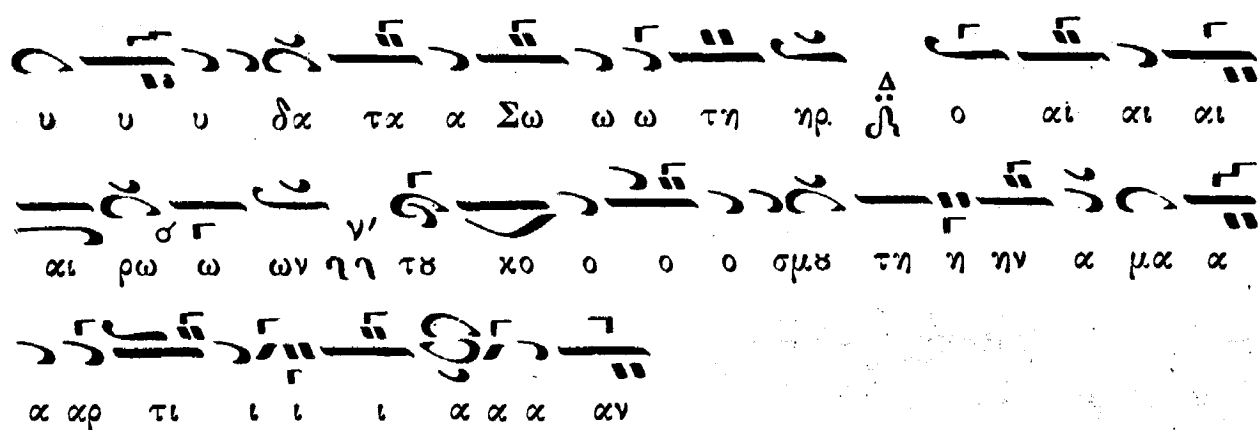 υ υ υ δα τα α Σω ω ω τη ηρ. Δ ο αὶ αι αι
αι ρω ω ων ν' τȣ κο ο ο ο σμȣ τη η ην α μα α
α αρ τι ι ι ι α α α αν